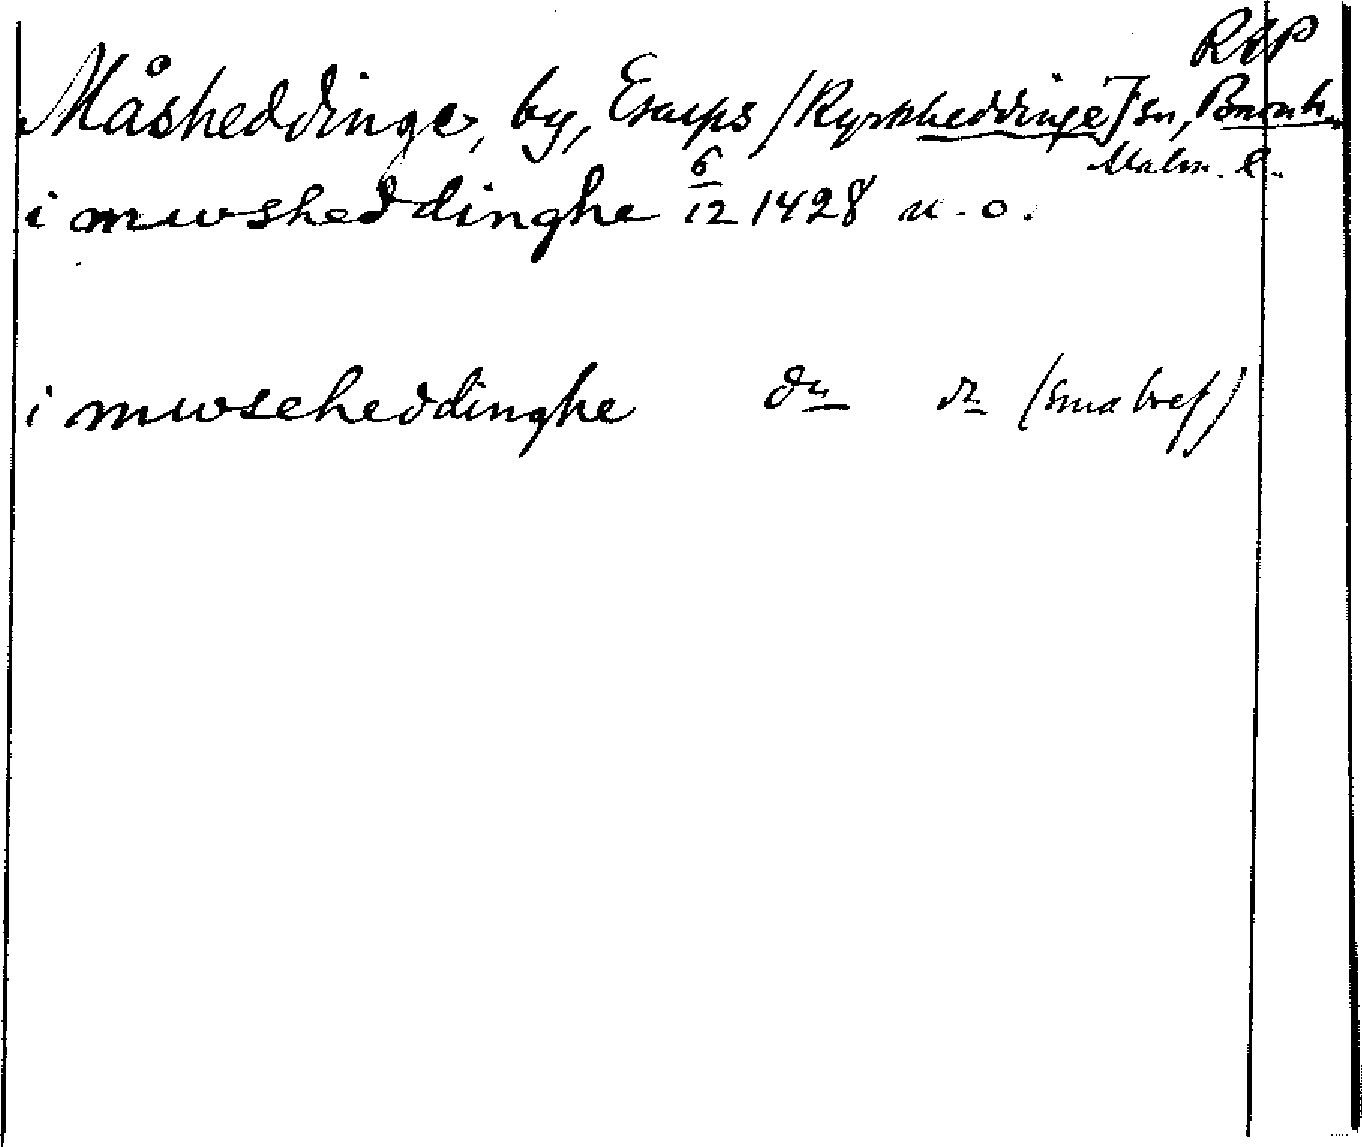 RÄP
Måsheddinge, by, Esarps [Kyrkheddinge] sn, Bara h.
Malm. l.
i mwsheddinghe 6/12 1428 u. o.
i mwscheddinghe dn dn (sma bref)